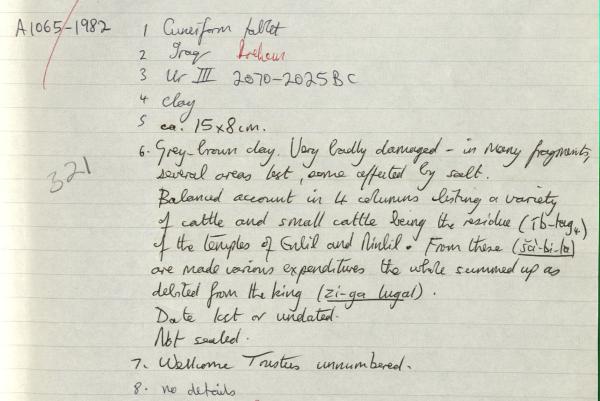 A1065-1982 1 Cuneiform tablet
2 Iraq Drehem
3 Ur III 2070-2025 BC
4 clay
5 ca. 15x8cm.
6. Grey-brown clay. Very badly damaged - in many fragments,
several areas lost, some affected by salt.
Balanced account in 4 columns listing a variety
of cattle and small cattle being the residue (íb-tag₄)
of the temples of Enlil and Ninlil. From these (šà-bi-ta)
are made various expenditures the whole summed up as
debited from the king (zi-ga lugal).
Date lost or undated.
Not sealed.
7. Wellcome Trustees unnumbered.
8. no details
321